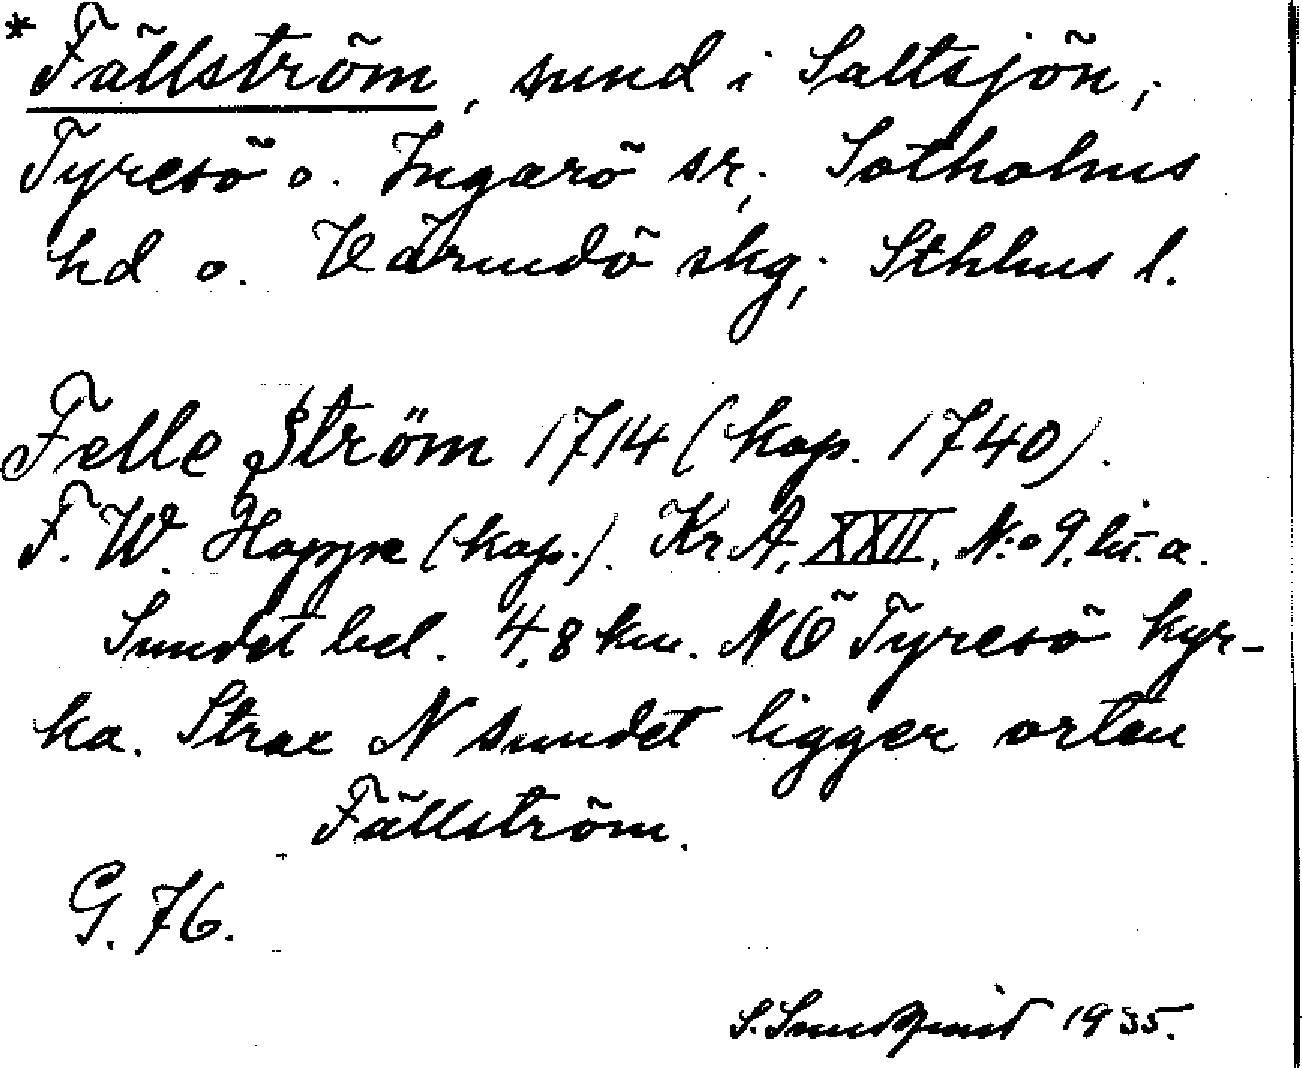 * Fällström, sund i Saltsjön,
Tyresö o. Ingarö sr, Sotholms
hd o. Värmdö skg, Sthlms l.
Felle Ström 1714 (kop. 1740).
F. W. Hoppe (kop.). Kr A. XXII. N:o 9. lit. a.
Sundet bel. 4,8 km. NÖ Tyresö kyr-
ka. Strax N sundet ligger orten
Fällström.
G. 76.
S. Sundquist 1935.